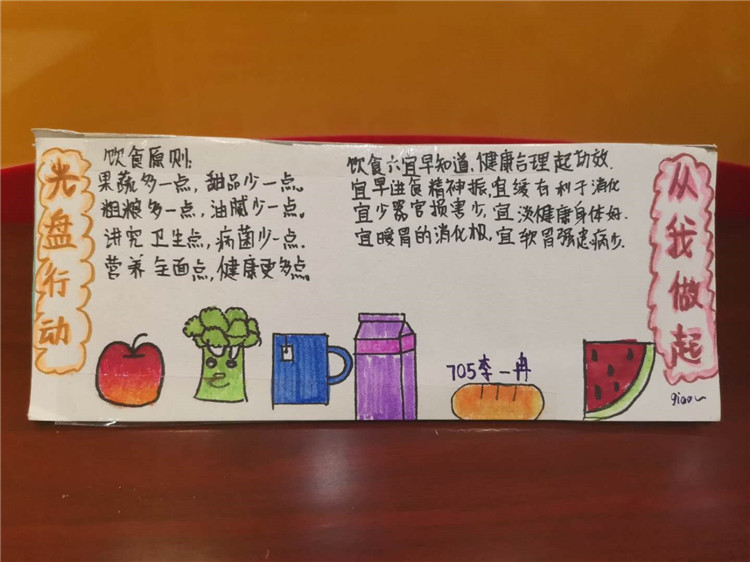 光盘行动
饮食原则:
果蔬多一点,甜品少一点。
粗粮多一点,油腻少一点。
讲究卫生点,病菌少一点.
营养全面点,健康更多点。
饮食六宜早知道,健康合理起功效.
宜早进食精神振,宜缓有利于消化
宜少器官损害少,宜淡健康身体好.
宜暖胃的消化机,宜软胃强患病少.
从我做起
705李一冉
qiao